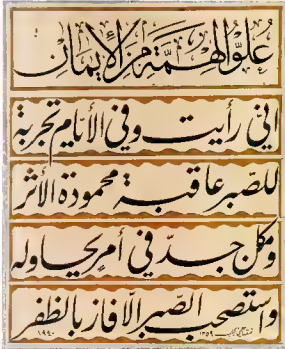 علو الهمة من الإيمان
اني رأيت وفي الأيام تجربة
للصبر عاقبة محمودة الأثر
وكل من جد في أمر يحاوله
واستصحب الصبر الا فاز بالظفر
١٣٥٩ ١٩٤٠